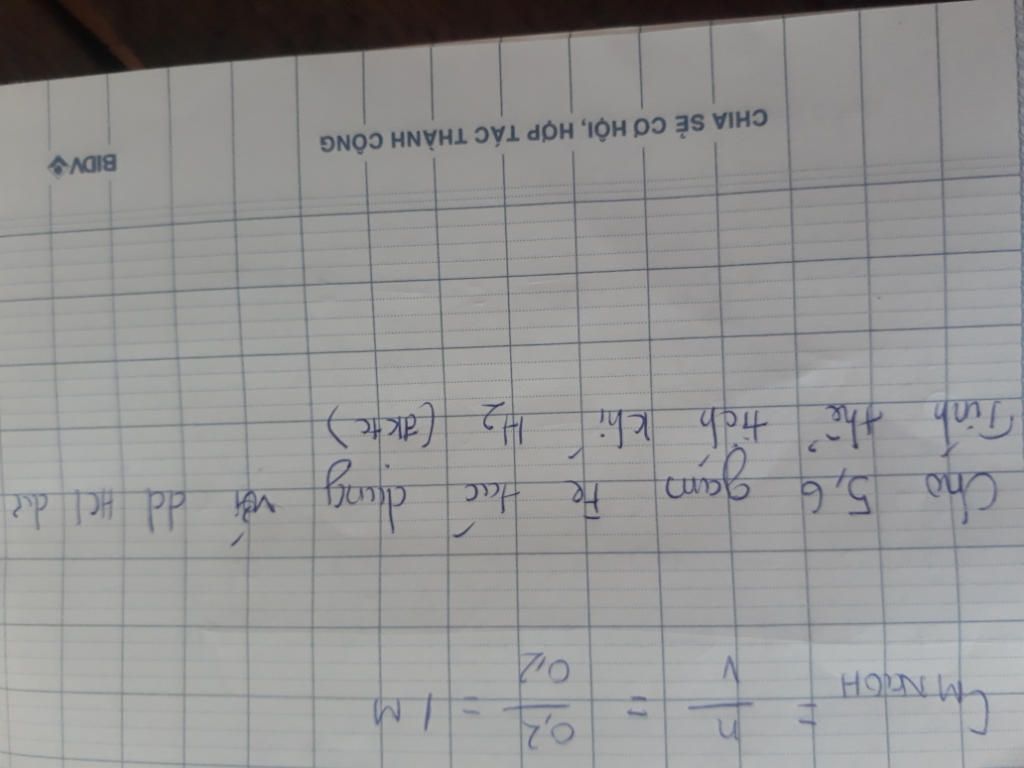 C_M NaOH = n/V = 0,2/0,2 = 1 M
Cho 5,6 gam Fe tác dụng với dd HCl dư
Tính thể tích khí H2 (đktc)
CHIA SẺ CƠ HỘI, HỢP TÁC THÀNH CÔNG
BIDV